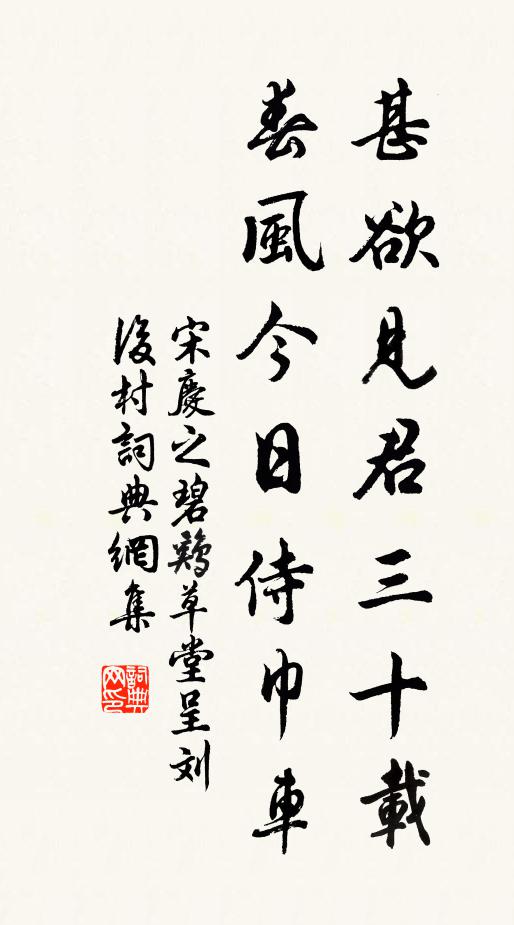 甚欲見君三十載
春風今日侍巾車
宋慶之碧鷄草堂呈刘
後村詞典網集
詞典网印